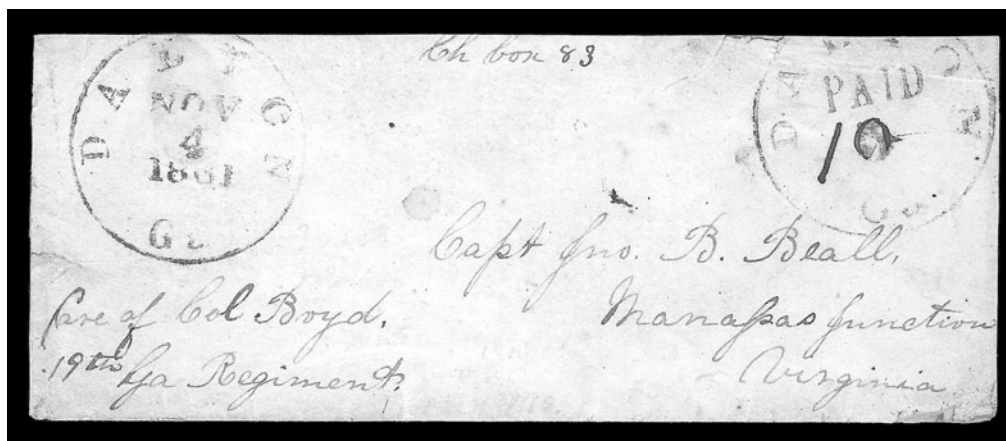 Ch box 83
DALTON
NOV
4
1861
Ga
PAID
10
Ga
Capt Jno. B. Beall,
Manassas Junction
Virginia
Care of Col Boyd,
19th Ga Regiment.